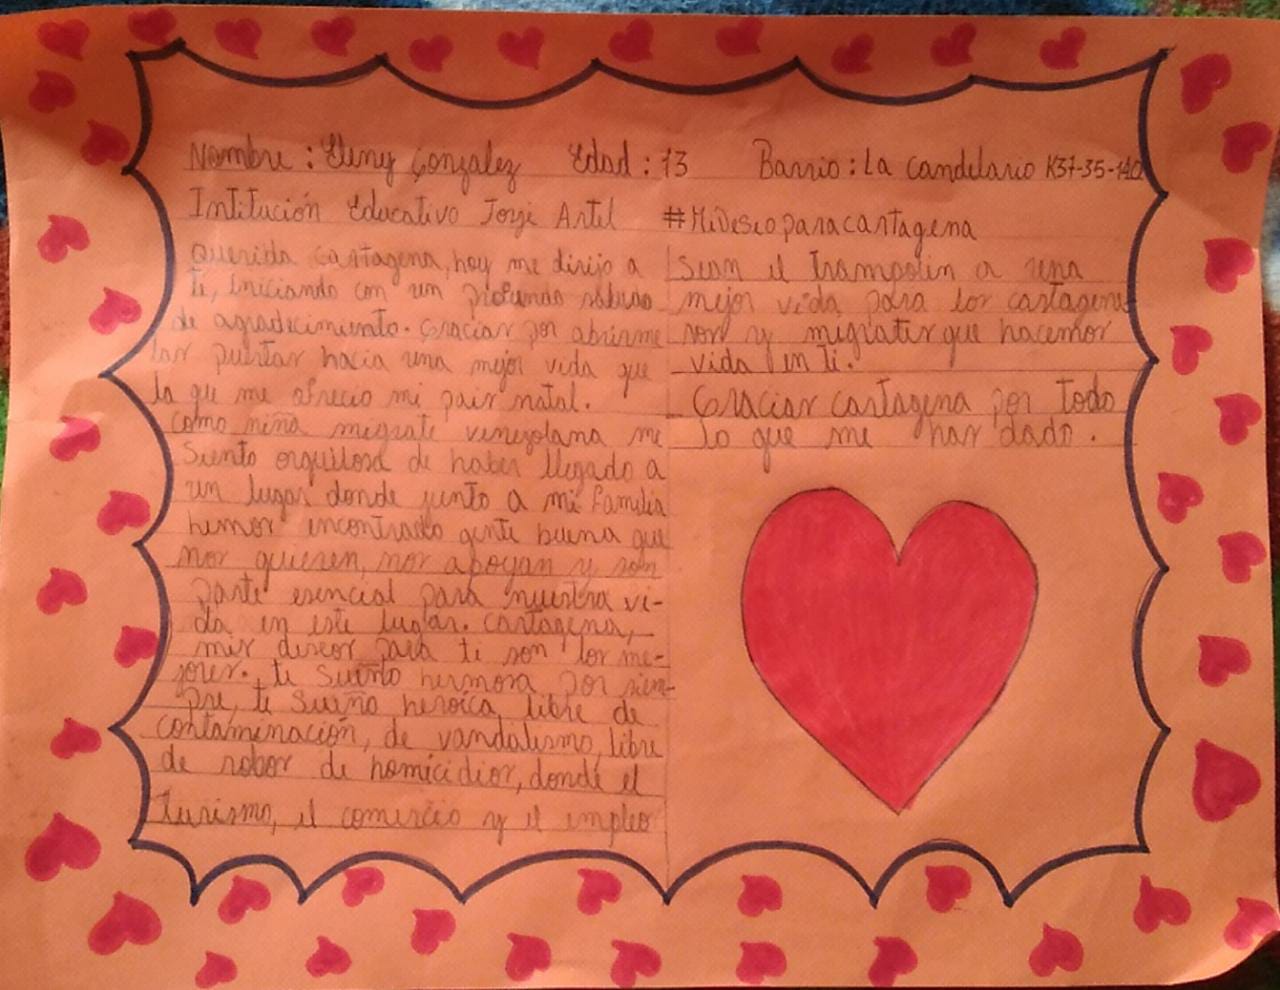 Nombre : Eleny Gonzalez Edad : 13 Barrio : La candelaria K37-35-140
Intitución Educativo Jorge Artel #MiDeseoparacartagena
Querida cartagena, hoy me dirijo a
ti, Iniciando con un profundo saludo
de agradecimiento. Gracias por abrirme
las puertas hacia una mejor vida que
la que me ofrecio mi pais natal.
como niña migrate venezolana me
siento orgullosa de haber llegado a
un lugar donde junto a mi Familia
hemos encontrado gente buena que
nos quieren, nos apoyan y son
parte esencial para nuestra vi-
da en este lugar. cartagena,
mis deseos para ti son los me-
jores. te sueño hermosa por siem-
pre, te sueño heroíca libre de
contaminación, de vandalismo, libre
de robos de homicidios, donde el
turismo, el comercio y el empleo
sean el trampolin a una
mejor vida para los cartagene
ros y migrates que hacemos
vida en ti.
Gracias cartagena por todo
lo que me has dado.